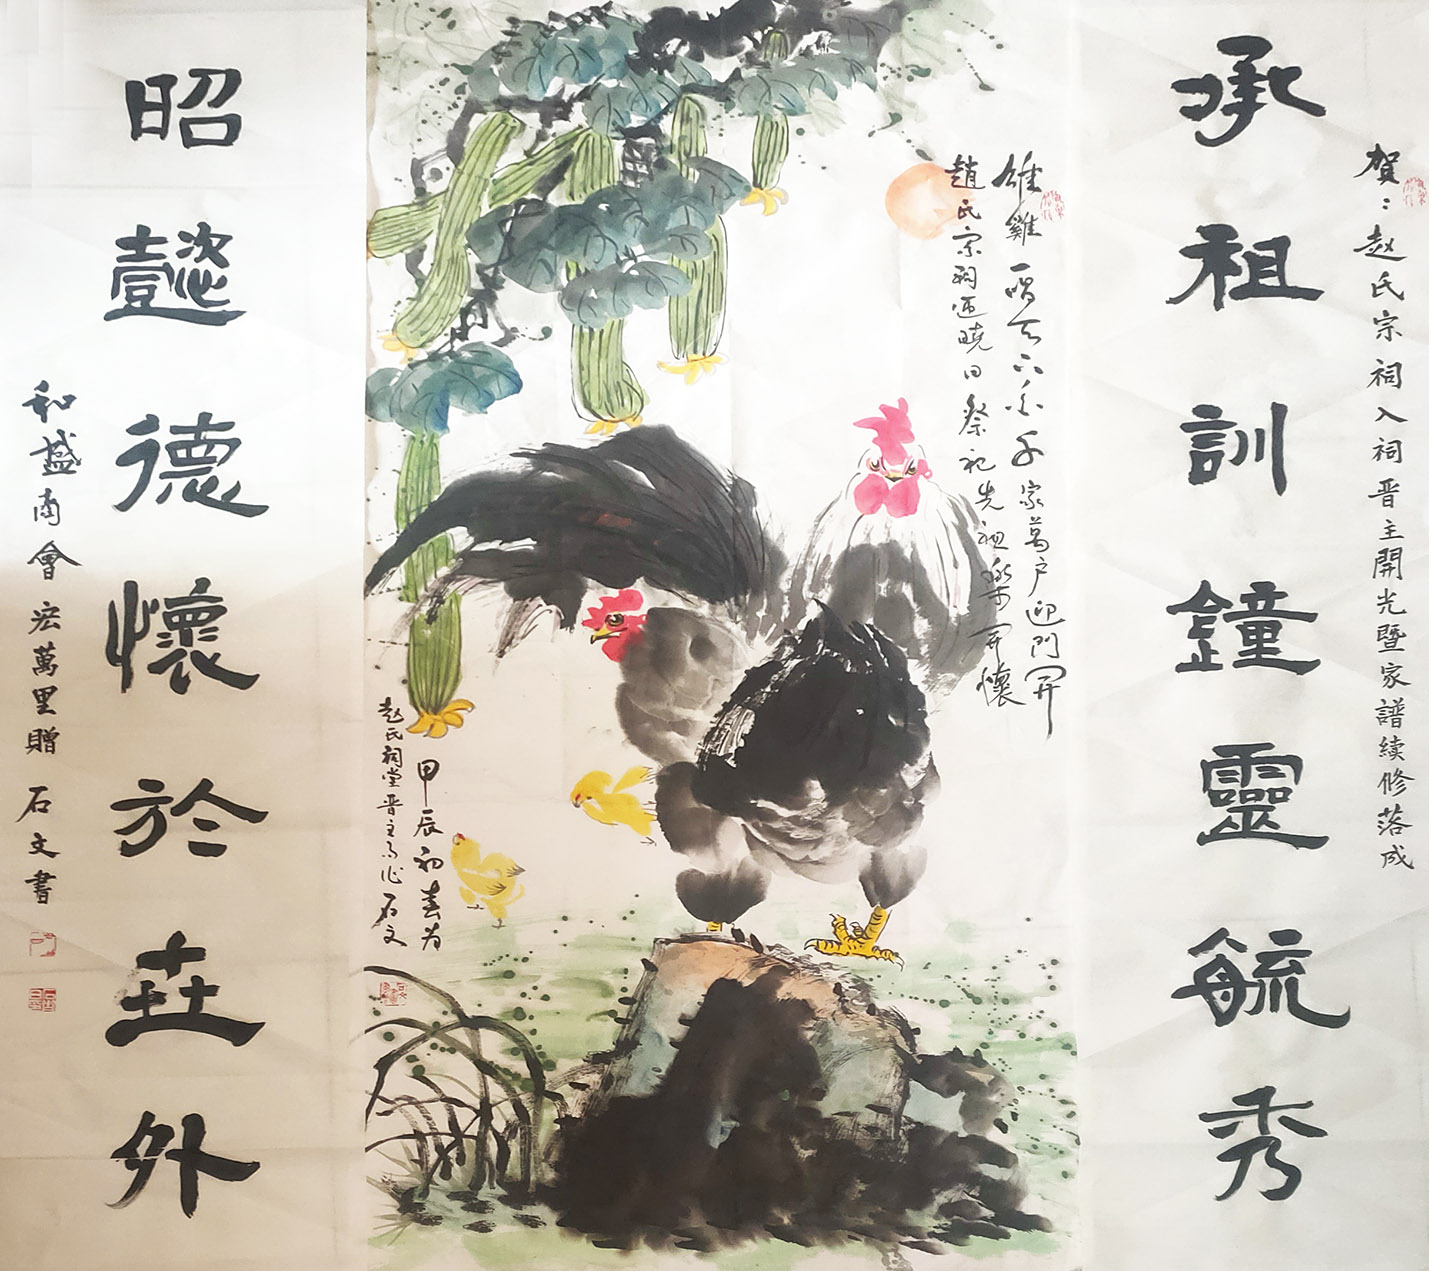 贺：赵氏宗祠入祠晋主開光暨家譜續修落成
承祖訓鐘靈毓秀
雄雞一唱天下 千家萬户迎門開
趙氏宗祠迎曉日祭祀先祖樂開懷
甲辰初春为
赵氏祠堂晋主而作 石文
昭懿德懷於世外
和盛商會宏萬里贈 石文書